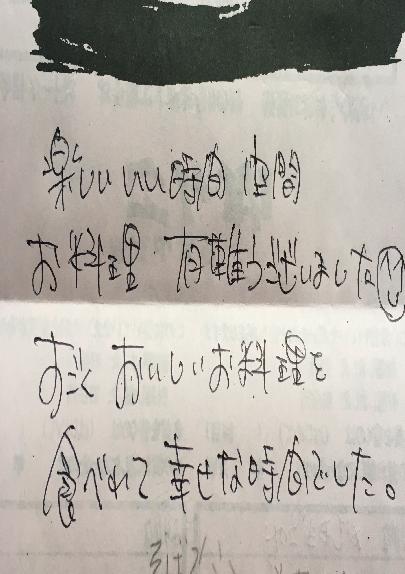 楽しいいい時間 空間
お料理 有難うございました
すごくおいしいお料理を
食べれて幸せな時間でした。